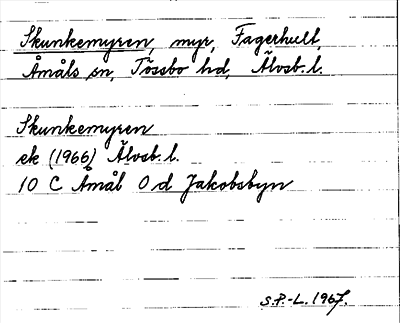 Skunkemyren, myr, Fagerhult,
Åmåls sn, Tössbo hd, Älvsb. l.
Skunkemyren
ek (1966) Älvsb. l.
10 C Åmål 0 d Jakobsbyn
S.P.-L. 1967.